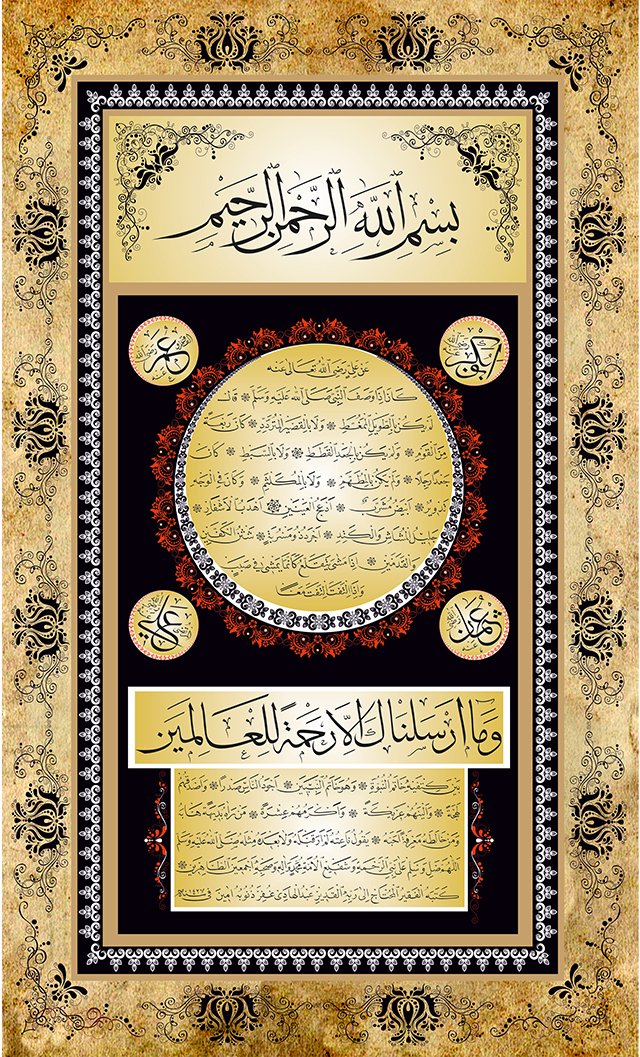 بِسْمِ اللّٰهِ الرَّحْمٰنِ الرَّحِيْمِ
ابوبكر
عمر
عن علي رضي الله تعالى عنه
كان اذا وصف النبي صلى الله عليه وسلم قال
لم يكن بالطويل الممغط ولا بالقصير المتردد وكان ربعة
من القوم ولم يكن بالجعد القطط ولا بالسبط كان
جعدا رجلا ولم يكن بالمطهم ولا بالمكلثم وكان في الوجه
تدوير ابيض مشرب ادعج العينين اهدب الاشفار
جليل المشاش والكتد اجرد ذو مسربة شثن الكفين
والقدمين اذا مشى يتقلع كأنما يمشي في صبب
واذا التفت التفت معا
عثمان
علي
وما ارسلناك الا رحمة للعالمين
بين كتفيه خاتم النبوة وهو خاتم النبيين اجود الناس صدرا واصدقهم
لهجة والينهم عريكة واكرمهم عشرة من رآه بديهة هابه
ومن خالطه معرفة احبه يقول ناعته لم ار قبله ولا بعده مثله صلى الله عليه وسلم
اللهم صل وسلم على نبي الرحمة وشفيع الامة محمد وآله وصحبه اجمعين الطاهرين
كتبه الفقير المحتاج الى ربه القدير عبدالهادي غفر ذنوبه امين